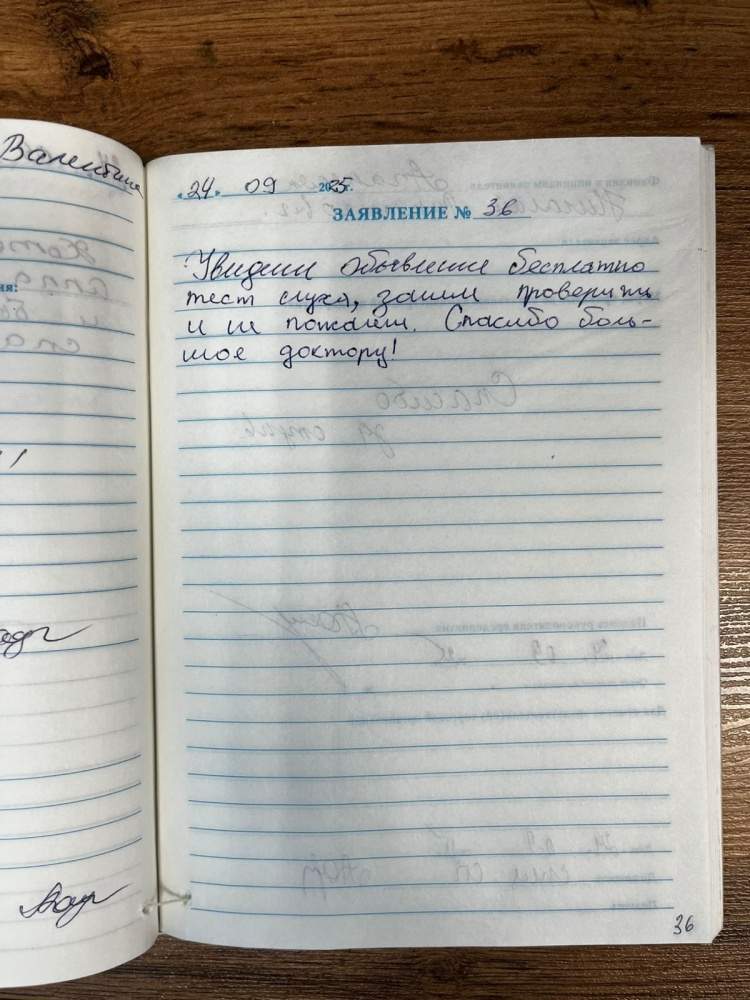 Валентина
"24" 09 2025г.
ЗАЯВЛЕНИЕ № 36
Увидели объявление бесплатно
тест слуха, зашли проверить
и не пожалели. Спасибо боль-
шое доктору!
ия:
36